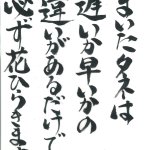 まいたタネは
遅いか早いかの
違いがあるだけで
必ず花ひらきま